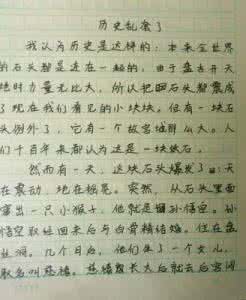 历史乱套了
我认为历史是这样的：本来全世界
的石头都是连在一起的，由于盘古开天
地时力量无比大，所以把石头都震成
了现在我们看见的小块块。但有一块石
头例外了，它有一个故宫那么大。人
们千百年来都认为这是一块铁石。
然而有一天，这块石头爆发了：天
在震动，地在摇晃。突然，从石头里面
蹦出一只小猴子，他就是孙悟空。孙
悟空取经回来后与白骨精结婚。住在盘
丝洞。几个日后，他们生了一个女儿，
取名叫慈禧。慈禧长大后就去后宫